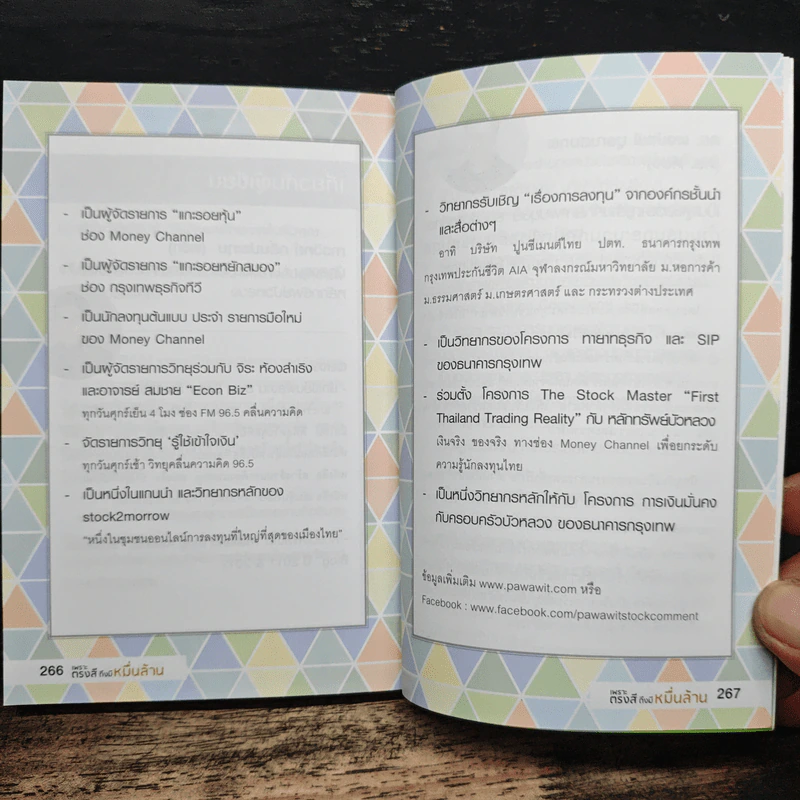 - เป็นผู้จัดรายการ “แกะรอยหุ้น”
ช่อง Money Channel
- เป็นผู้จัดรายการ “แกะรอยหยักสมอง”
ช่อง กรุงเทพธุรกิจทีวี
- เป็นนักลงทุนต้นแบบ ประจำ รายการมือใหม่
ของ Money Channel
- เป็นผู้จัดรายการวิทยุร่วมกับ จิระ ห้องสำเริง
และอาจารย์ สมชาย “Econ Biz”
ทุกวันศุกร์เย็น 4 โมง ช่อง FM 96.5 คลื่นความคิด
- จัดรายการวิทยุ ‘รู้ใช้เข้าใจเงิน’
ทุกวันศุกร์เช้า วิทยุคลื่นความคิด 96.5
- เป็นหนึ่งในแกนนำ และวิทยากรหลักของ
stock2morrow
“หนึ่งในชุมชนออนไลน์การลงทุนที่ใหญ่ที่สุดของเมืองไทย”
266 เพราะ
ตรงสี ถึงมี หมื่นล้าน
- วิทยากรรับเชิญ “เรื่องการลงทุน” จากองค์กรชั้นนำ
และสื่อต่างๆ
อาทิ บริษัท ปูนซีเมนต์ไทย ปตท. ธนาคารกรุงเทพ
กรุงเทพประกันชีวิต AIA จุฬาลงกรณ์มหาวิทยาลัย ม.หอการค้า
ม.ธรรมศาสตร์ ม.เกษตรศาสตร์ และ กระทรวงต่างประเทศ
- เป็นวิทยากรของโครงการ ทายาทธุรกิจ และ SIP
ของธนาคารกรุงเทพ
- ร่วมตั้ง โครงการ The Stock Master “First
Thailand Trading Reality” กับ หลักทรัพย์บัวหลวง
เงินจริง ของจริง ทางช่อง Money Channel เพื่อยกระดับ
ความรู้นักลงทุนไทย
- เป็นหนึ่งวิทยากรหลักให้กับ โครงการ การเงินมั่นคง
กับครอบครัวบัวหลวง ของธนาคารกรุงเทพ
ข้อมูลเพิ่มเติม www.pawawit.com หรือ
Facebook : www.facebook.com/pawawitstockcomment
เพราะ
ตรงสี ถึงมี หมื่นล้าน 267